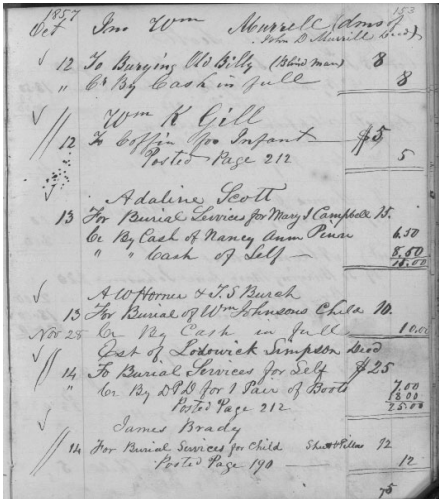 1857 153
Oct Jno Wm Murrell (Adms of
John D. Murrill Decd)
12 To Burying Old Billy (Blind man) 8
" Cr By Cash in full 8
Wm K Gill
12 To Coffin for Infant $5
Posted Page 212 5
Adaline Scott
13 For Burial Services for Mary J Campbell 15.
Cr By Cash of Nancy Ann Penn 6.50
" " Cash of Self 8.50
15.00
A W Horner & T. S Burch
13 For Burial of Wm Johnsons Child 10.
Nov 28 Cr By Cash in full 10.00
Est of Lodowick Simpson Decd
14 To Burial Services for Self $25
" Cr By D P D for 1 Pair of Boots 7.00
18.00
Posted Page 212 25.00
James Brady
14 For Burial Services for Child 12
Posted Page 190 12
75